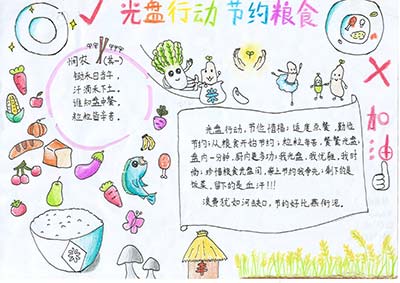 光盘行动 节约粮食
悯农（其一）
锄禾日当午，
汗滴禾下土。
谁知盘中餐，
粒粒皆辛苦。
米
加油
光盘行动，节位惜福；适度点餐，勤俭
节约；从粮食开始节约；粒粒每香，餐餐光盘，
盘内一分钟，厨内是多功；我光盘，我优雅，我时
尚；珍惜粮食光盘间，带上节约我争先；剩下的是
饭菜，留下的是血汗!!!
浪费犹如河缺口，节约好比燕衔泥。
米